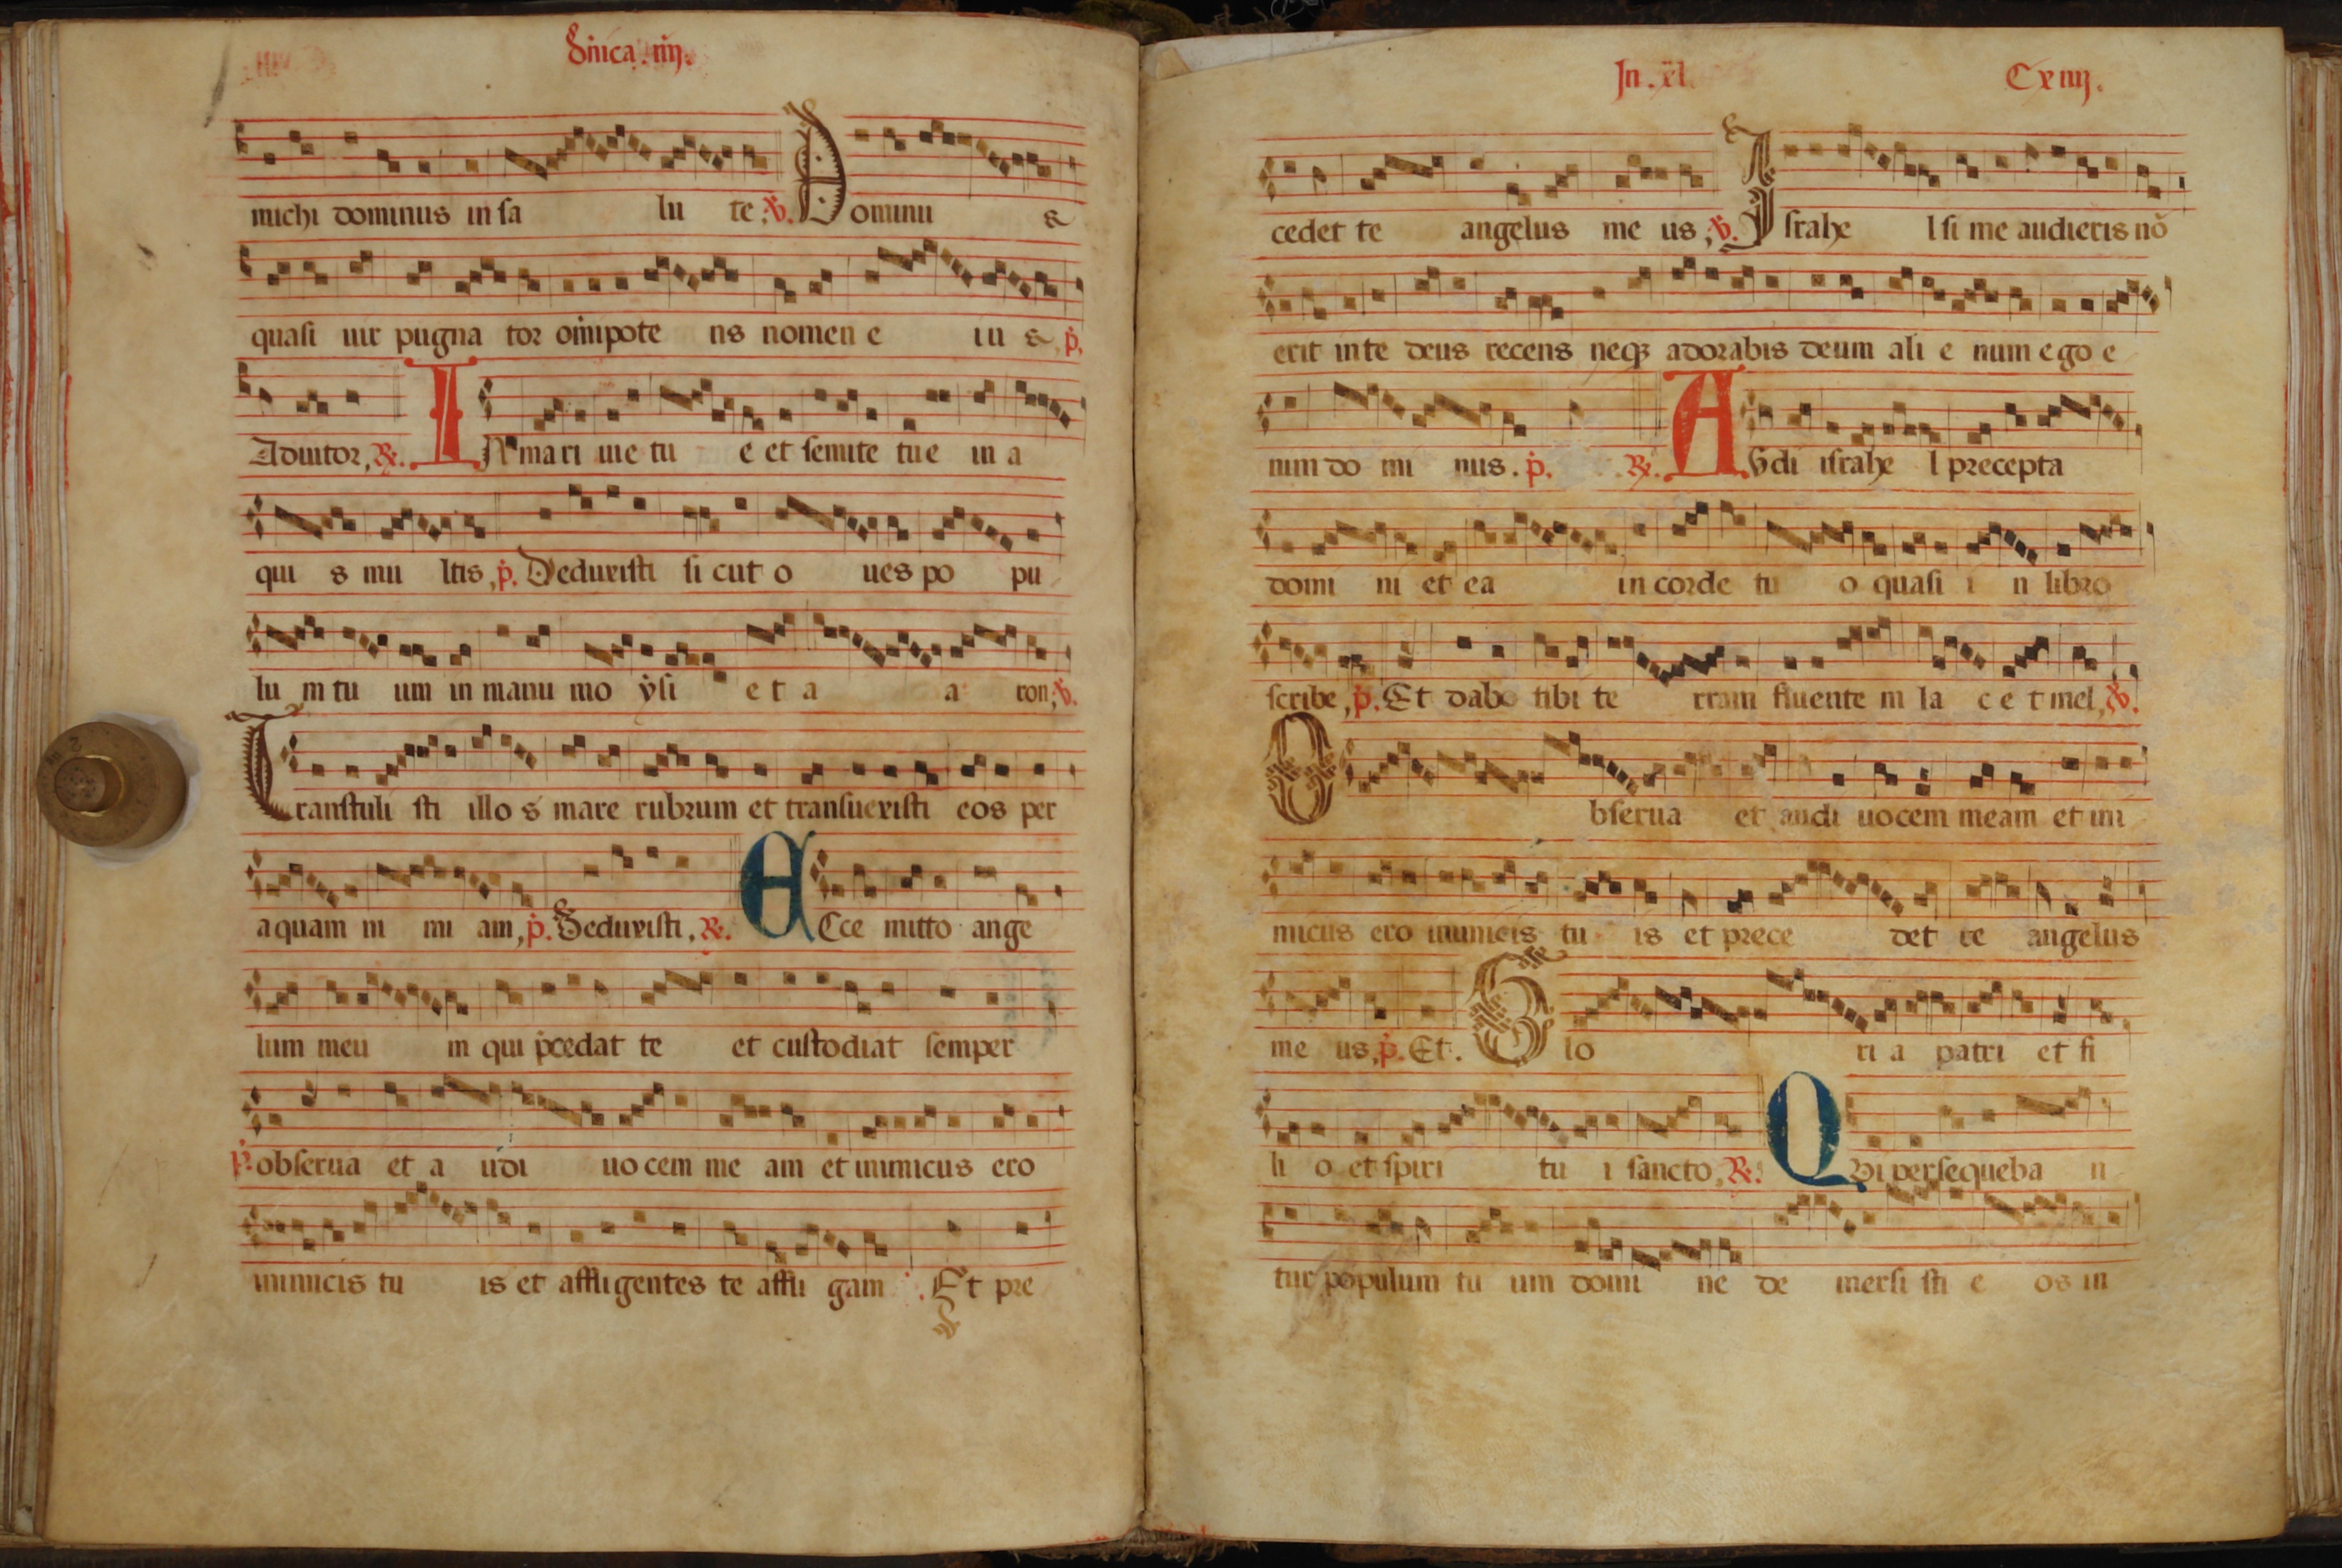 Dn̄ica. iiij.
michi dominus in sa lu te. ℣. Dominu s
quasi uir pugna tor om̄ipote ns nomen e iu s. p̄.
Adiutor. ℟. IN mari uie tu e et semite tue in a
qui s mu ltis. p̄. Deduxisti si cut o ues po pu
lu m tu um in manu mo ysi e t a a ron. ℣.
Transtuli sti illo s mare rubrum et transuexisti eos per
aquam ni mi am. p̄. Deduxisti. ℟. ECce mitto ange
lum meu m qui p̄cedat te et custodiat semper
p̄. obserua et a udi uocem me am et inimicus ero
inimicis tu is et affligentes te affli gam. Et pre
In. xl. Cxiiij.
cedet te angelus me us. ℣. Israhe l si me audieris nō
erit in te deus recens neqꝫ adorabis deum ali e num ego e
nim do mi nus. p̄. ℟. AUdi israhe l precepta
domi ni et ea in corde tu o quasi i n libro
scribe. p̄. Et dabo tibi te rram fluente m la c e t mel. ℣.
Obserua et audi uocem meam et ini
micus ero inimicis tu is et prece det te angelus
me us. p̄. Et. Glo ri a patri et fi
li o et spiri tu i sancto. ℟. QUi persequeba n
tur populum tu um domi ne de mersi sti e os in